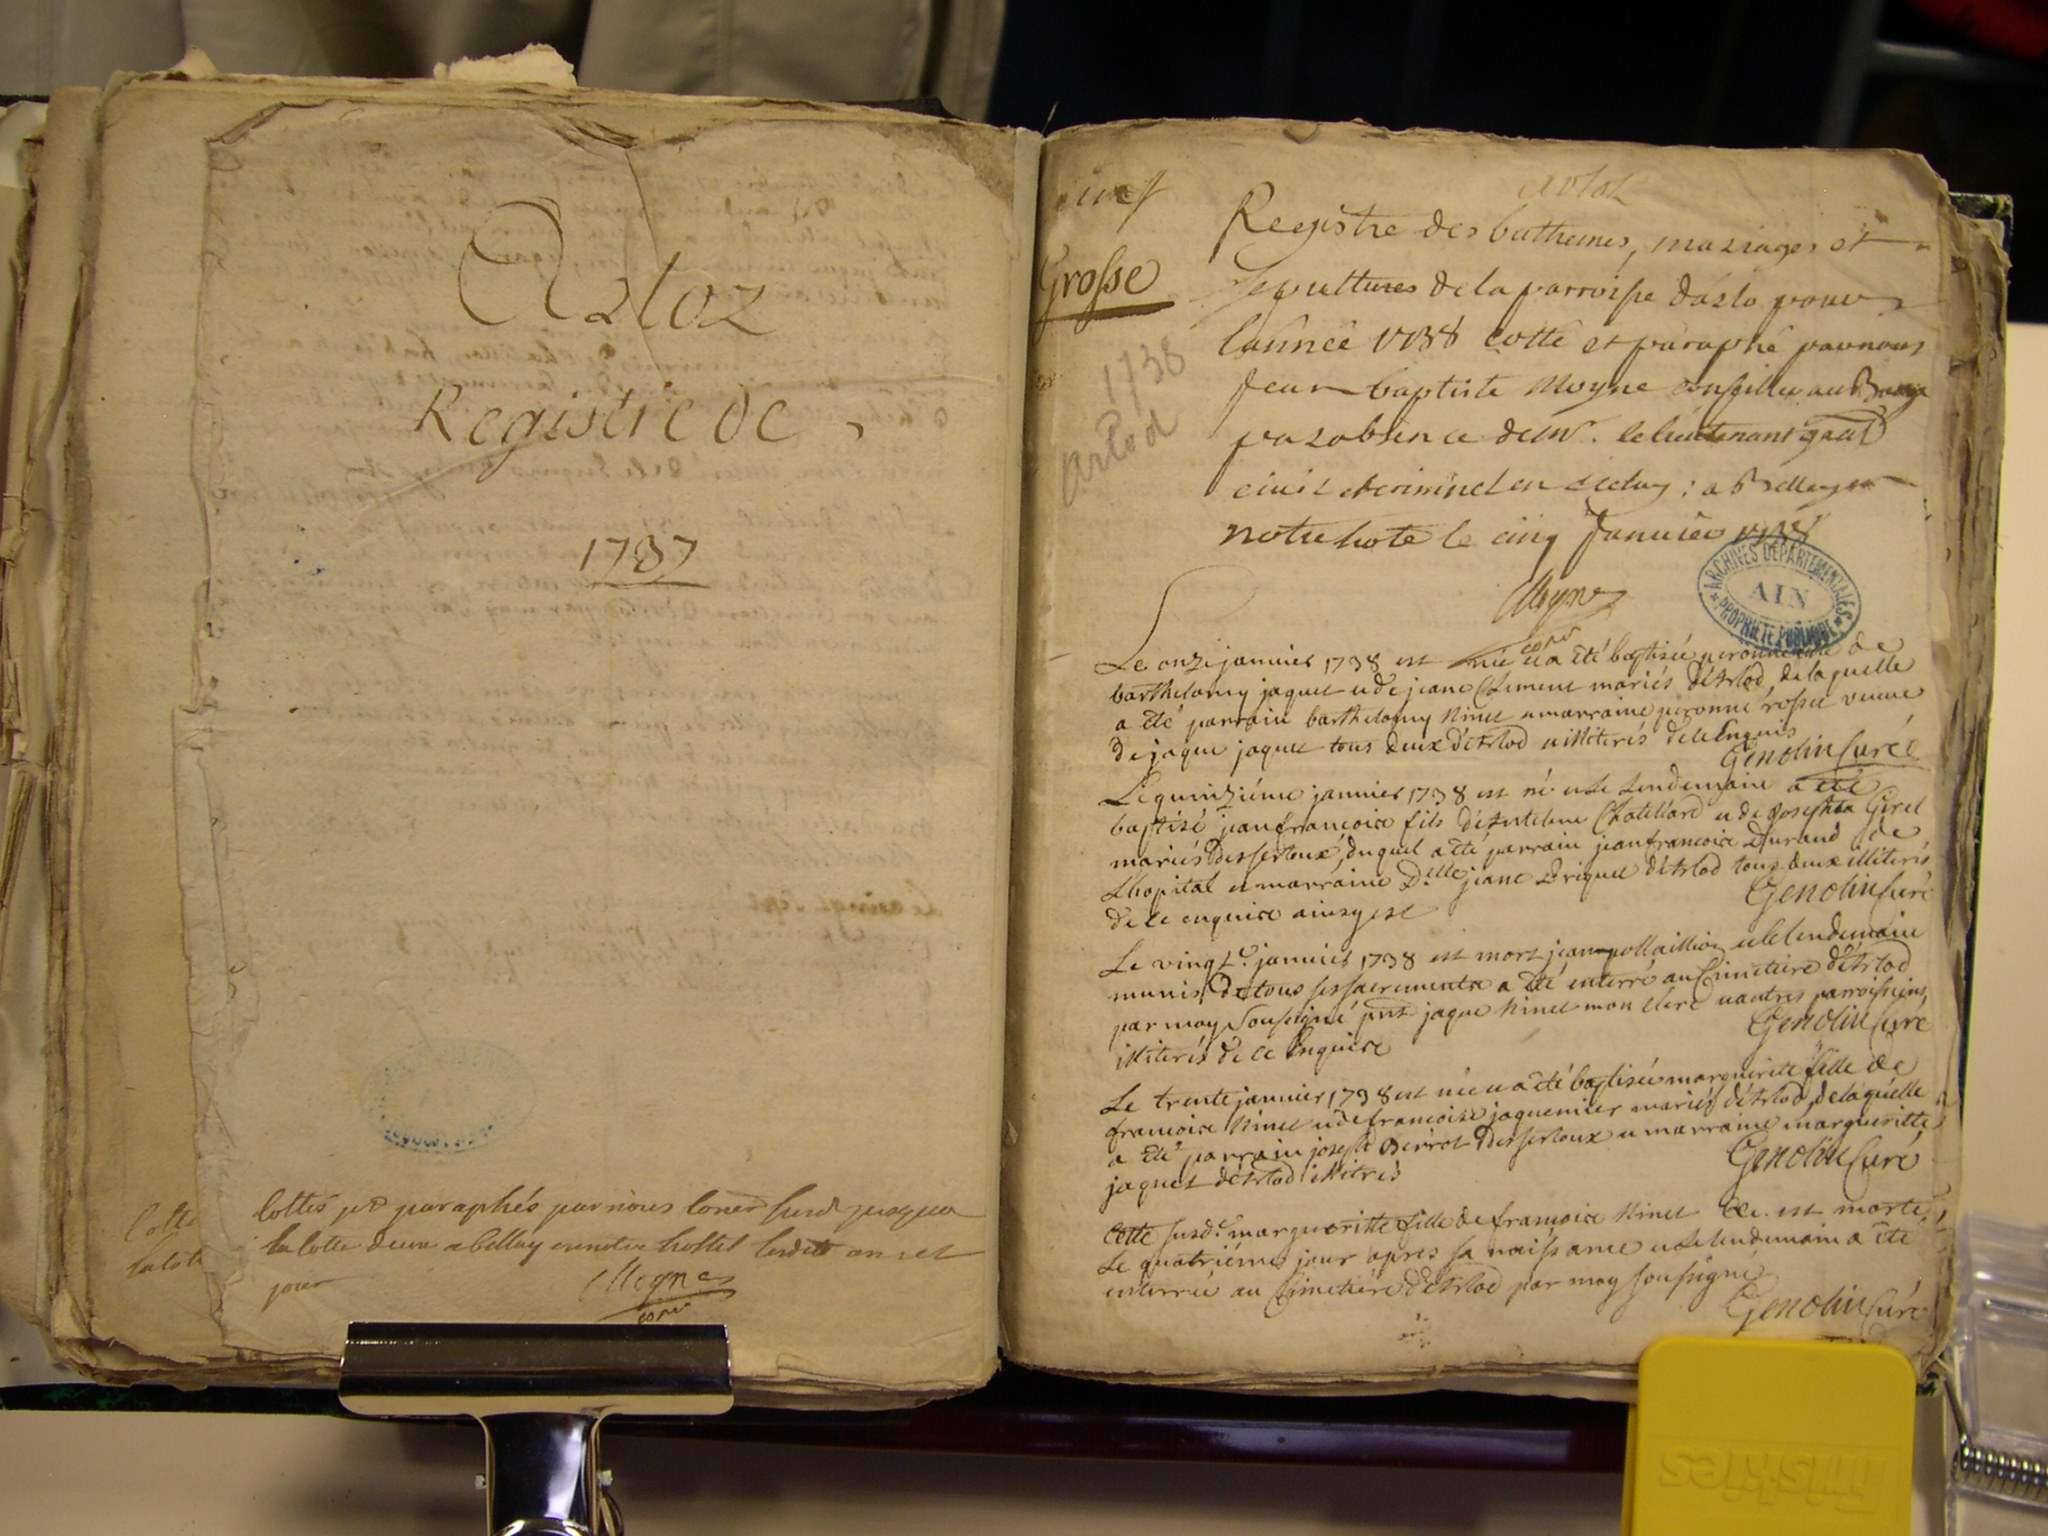 Arloz
Registre de
1737
Cottés et paraphés par nous
la cotte deux a Belley en notre hostel lesdits an et
jour
Moyne
Cotte
la cotte
Grosse
1738
Arlod
arloz
Registre des bathemes, mariages et
sepultures de la parroisse d'arlo pour
l'année 1738 cotté et paraphé par nous
Jean baptiste Moyne conseiller au
par absence de Mr. le lieutenant gnal
civil et criminel en : a Belley en
notre hote le cinq Janvier 1738
Moyne
ARCHIVES DEPARTEMENTALES
AIN
PROPRIÉTÉ PUBLIQUE
Le onze janvier 1738 est née et a été baptisée peronne fille de
barthelamy jaquet et de jeane Clement mariés d'Arlod, de laquelle
a été parrain barthelamy Ninet et marraine peronne rosset veuve
de jaque jaquet tous deux d'Arlod illiterés de ce Enquis
Genolin Curé
Le quinziéme janvier 1738 est né et le lendemain a été
baptisé jean françois fils d'Antelme Chatillard et de Josephta Girel
mariés dessertoux, duquel a été parrain jean françois Durand de
Lhopital et marraine Dlle jeane Briquet d'Arlod tous deux illiterés
de ce enquis ainsy est
Genolin Curé
Le vingt janvier 1738 est mort jean et le lendemain
munis de tous ses sacrements a été enterré au Cimetiere d'Arlod
par moy soussigné pnt jaque Ninet mon clerc et autres parroissiens
illiterés de ce Enquis
Genolin Curé
Le trente janvier 1738 est née et a été baptisée marguerite fille de
françois Ninet et de françoise jaquemier mariés d'Arlod, de laquelle
a été parrain joseph Berrot dessertoux et marraine margueritte
jaquet d'Arlod illitrés
Genolin Curé
Cette susd. margueritte fille de françois Ninet &c. est morte
le quatriéme jour apres sa naissance et le lendemain a été
enterrée au Cimetiére d'Arlod par moy soussigné
Genolin Curé